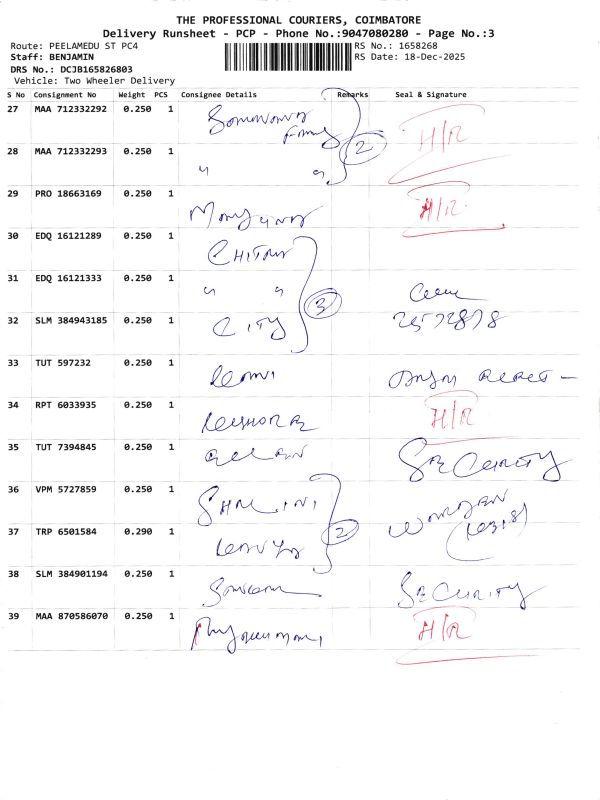 THE PROFESSIONAL COURIERS, COIMBATORE
Delivery Runsheet - PCP - Phone No.:9047080280 - Page No.:3
Route: PEELAMEDU ST PC4 RS No.: 1658268
Staff: BENJAMIN RS Date: 18-Dec-2025
DRS No.: DCJB165826803
Vehicle: Two Wheeler Delivery
S No Consignment No Weight PCS Consignee Details Remarks Seal & Signature
27 MAA 712332292 0.250 1 H/R
28 MAA 712332293 0.250 1 " " 2
29 PRO 18663169 0.250 1 H/R
30 EDQ 16121289 0.250 1
31 EDQ 16121333 0.250 1 " " 3
32 SLM 384943185 0.250 1 CITY
33 TUT 597232 0.250 1
34 RPT 6033935 0.250 1 H/R
35 TUT 7394845 0.250 1 SECURITY
36 VPM 5727859 0.250 1 SHALINI
37 TRP 6501584 0.290 1 2
38 SLM 384901194 0.250 1 SECURITY
39 MAA 870586070 0.250 1 H/R